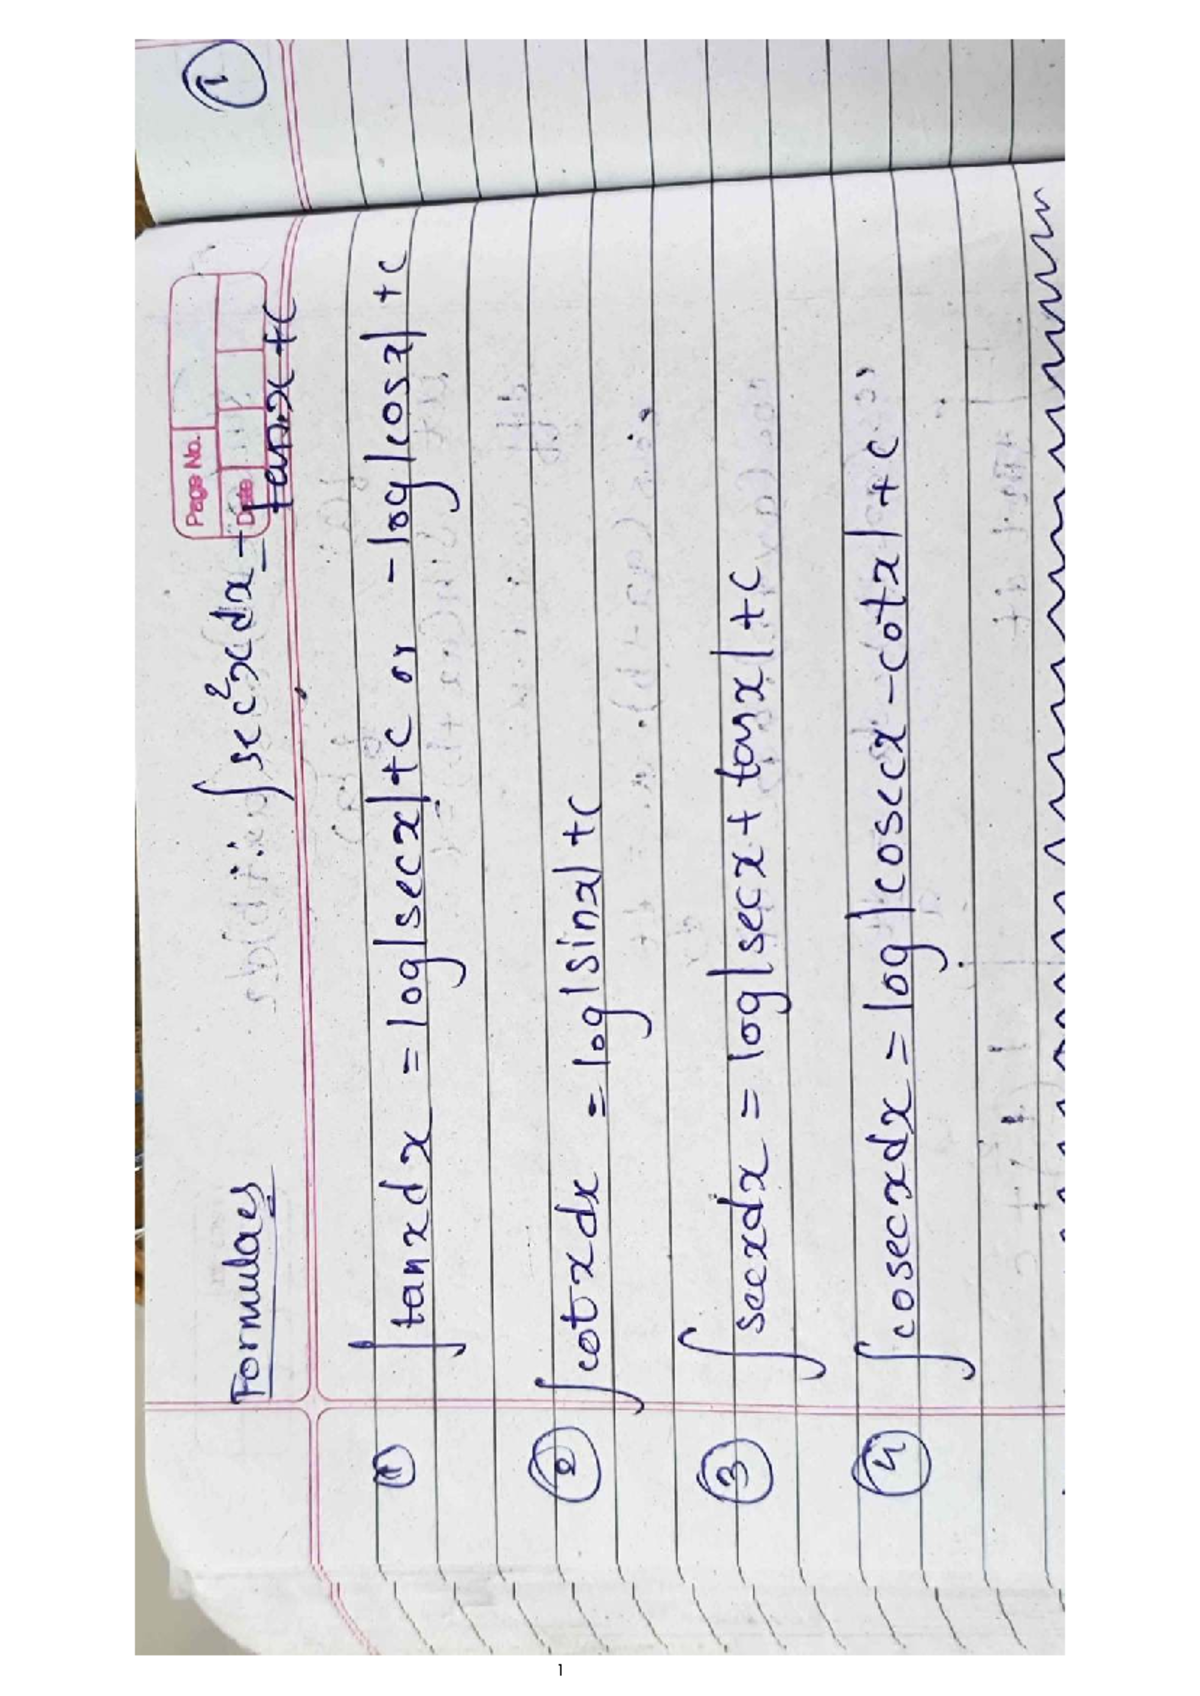 Page No.
Date
∫sec²x dx = tan x + c
Formulaes
① ∫tanxdx = log|secx|+c or -log|cosx|+c
② ∫cotxdx = log|sinx|+c
③ ∫secxdx = log|secx+tanx|+c
④ ∫cosecxdx = log|cosecx-cotx|+c
①
1